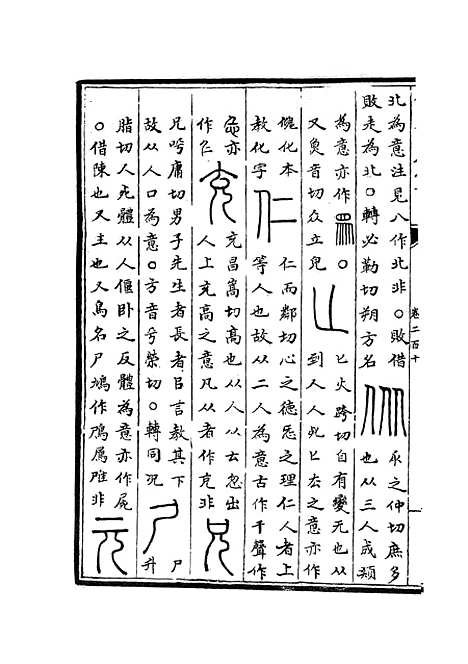 北為意注見八作北非○敗借
敗走為北○轉必勒切朔方名
㐺
㐺之仲切庶多
也从三人成頪
為意亦作眾○
又魚音切众立皃
匕
匕火跨切自有變无也从
到人人死匕去之意亦作
化本
教化字
仁
仁而鄰切心之德㤅之理仁人者上
等人也故从二人為意古作千聲作
忎亦
作
充
充昌嵩切高也从人从𠫓忽出
人上充高之意凡从者作充非
兄
兄呼庸切男子先生者長者㠯言教其下
故从人口為意○方音兮榮切○轉同況
尸
尸
升
脂切人死體从人偃臥之反體為意亦作屍
○借陳也又主也又鳥名尸鳩作鳲雎非
元
卷二百十